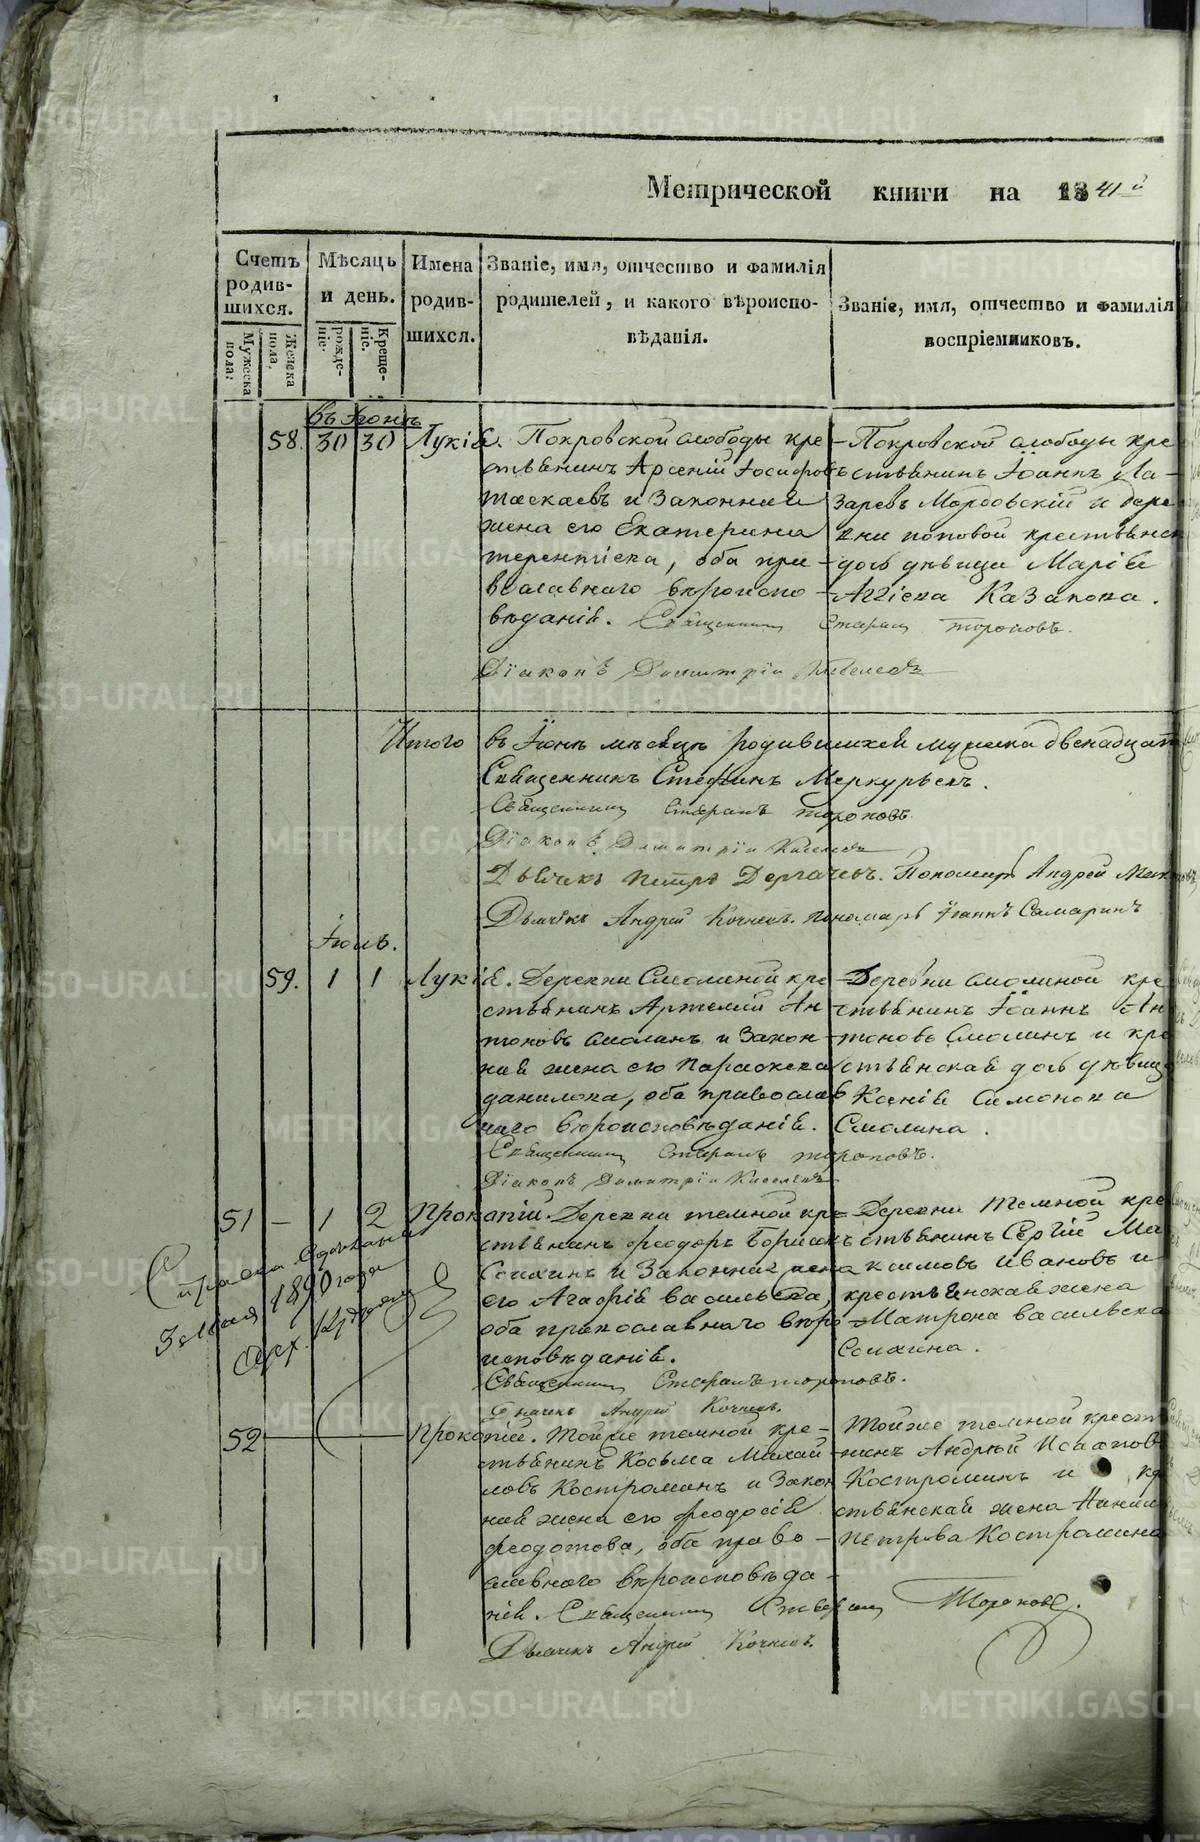 Метрической книги на 1841й
Счетъ родив-шихся.
Мужеска пола.
Женска пола.
Мѣсяцъ и день.
рожде-ніе.
Креще-ніе.
Имена родив-шихся.
Званіе, имя, отчество и фамилія
родителей, и какого вѣроиспо-
вѣданія.
Званіе, имя, отчество и фамилія
воспріемниковъ.
въ Іюнѣ
58. 30 30 Лукія. Покровской слободы кре-
стьянинъ Арсеній Іосифовъ
и законная
жена его Екатерина
терентіева, оба пра-
вославнаго вѣроиспо-
вѣданія. Священникъ Стефанъ тороповъ.
Діаконъ Димитрій Киселевъ
Покровской слободы кре-
стьянинъ Іоаннъ Ла-
заревъ и дере
вни поповой крестьянск
дочь дѣвица Марія
Казакова.
Итого въ Іюнѣ мѣсяцѣ родившихся мужеска двенадцат
Священникъ Стефанъ Меркурьевъ.
Священникъ Стефанъ тороповъ.
Діаконъ Димитрій Киселевъ
Дьячекъ Петръ Дергачевъ. Пономарь Андрей
Дьячекъ Андрей Кочневъ. пономарь Іоаннъ Самаринъ
Іюль.
59. 1 1 Лукія. Деревни Смолиной кре
стьянинъ Артемій Ан
тоновъ Смолинъ и закон-
ная жена его Параскева
данилова, оба православ
наго вѣроисповѣданія.
Священникъ Стефанъ тороповъ.
Діаконъ Димитрій Киселевъ
Деревни смолиной кре
стьянинъ Іоаннъ Ан
тоновъ Смолинъ и кре
стьянская дочь дѣвица
Ксенія Симонова
Смолина.
51 – 1 2 Прокопій. Деревни темной кре-
стьянинъ феодоръ
и законная жена
его Агафія васильева,
оба православнаго вѣро
исповѣданія.
Священникъ Стефанъ тороповъ.
Дьячекъ Андрей Кочневъ.
Деревни темной кре
стьянинъ Сергій Ма
ксимовъ Ивановъ и
крестьянская жена
Матрона васильева
Справка
3 Мая 1890 года
52 Прокопій. Тойже темной кре-
стьянинъ Косьма Михай-
ловъ Костроминъ и закон
ная жена его феодосія
федотова, оба право-
славнаго вѣроисповѣда-
нія. Священникъ Стефанъ Тороповъ.
Дьячекъ Андрей Кочневъ.
Тойже темной крест
Андрей
Костроминъ и кр
стьянская жена
петрова Костромина
METRIKI.GASO-URAL.RU